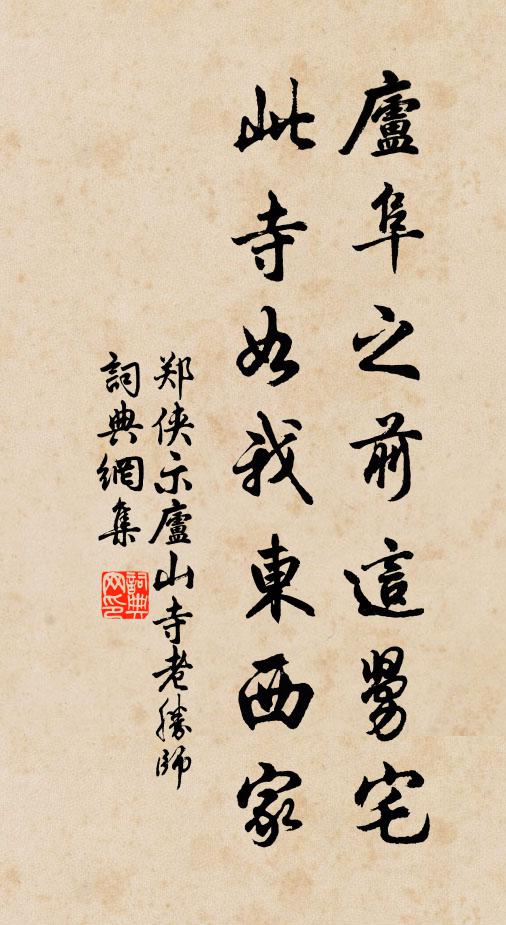 廬阜之前這舅宅
此寺如我東西家
郑侠示廬山寺老勝師
詞典網集
詞典网印